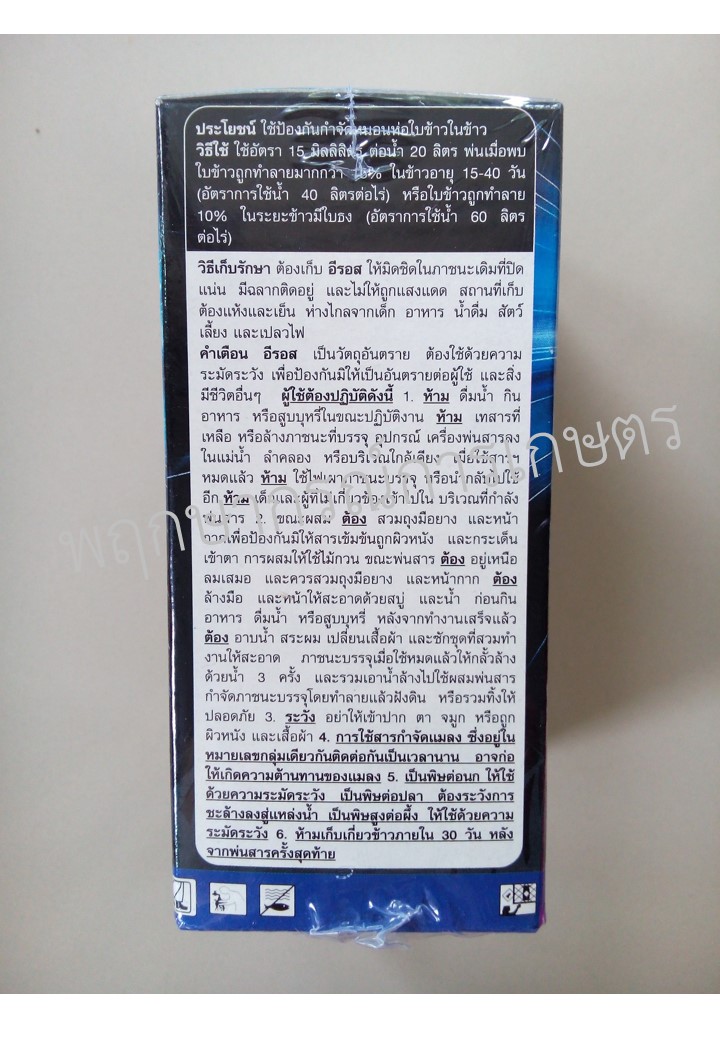 ประโยชน์ ใช้ป้องกันกำจัดหนอนห่อใบข้าวในข้าว
วิธีใช้ ใช้อัตรา 15 มิลลิลิตร ต่อน้ำ 20 ลิตร พ่นเมื่อพบ
ใบข้าวถูกทำลายมากกว่า ในข้าวอายุ 15-40 วัน
(อัตราการใช้น้ำ 40 ลิตรต่อไร่) หรือใบข้าวถูกทำลาย
10% ในระยะข้าวมีใบธง (อัตราการใช้น้ำ 60 ลิตร
ต่อไร่)
วิธีเก็บรักษา ต้องเก็บ อีรอส ให้มิดชิดในภาชนะเดิมที่ปิด
แน่น มีฉลากติดอยู่ และไม่ให้ถูกแสงแดด สถานที่เก็บ
ต้องแห้งและเย็น ห่างไกลจากเด็ก อาหาร น้ำดื่ม สัตว์
เลี้ยง และเปลวไฟ
คำเตือน อีรอส เป็นวัตถุอันตราย ต้องใช้ด้วยความ
ระมัดระวัง เพื่อป้องกันมิให้เป็นอันตรายต่อผู้ใช้ และสิ่ง
มีชีวิตอื่นๆ ผู้ใช้ต้องปฏิบัติดังนี้ 1. ห้าม ดื่มน้ำ กิน
อาหาร หรือสูบบุหรี่ในขณะปฏิบัติงาน ห้าม เทสารที่
เหลือ หรือล้างภาชนะที่บรรจุ อุปกรณ์ เครื่องพ่นสารลง
ในแม่น้ำ ลำคลอง หรือบริเวณใกล้เคียง เมื่อใช้สารฯ
หมดแล้ว ห้าม ใช้ไฟเผาภาชนะบรรจุ หรือนำกลับไปใช้
อีก ห้าม เด็กและผู้ที่ไม่เกี่ยวข้องเข้าไปใน บริเวณที่กำลัง
พ่นสาร 2. ขณะผสม ต้อง สวมถุงมือยาง และหน้า
กากเพื่อป้องกันมิให้สารเข้มข้นถูกผิวหนัง และกระเด็น
เข้าตา การผสมให้ใช้ไม้กวน ขณะพ่นสาร ต้อง อยู่เหนือ
ลมเสมอ และควรสวมถุงมือยาง และหน้ากาก ต้อง
ล้างมือ และหน้าให้สะอาดด้วยสบู่ และน้ำ ก่อนกิน
อาหาร ดื่มน้ำ หรือสูบบุหรี่ หลังจากทำงานเสร็จแล้ว
ต้อง อาบน้ำ สระผม เปลี่ยนเสื้อผ้า และซักชุดที่สวมทำ
งานให้สะอาด ภาชนะบรรจุเมื่อใช้หมดแล้วให้กลั้วล้าง
ด้วยน้ำ 3 ครั้ง และรวมเอาน้ำล้างไปใช้ผสมพ่นสาร
กำจัดภาชนะบรรจุโดยทำลายแล้วฝังดิน หรือรวมทิ้งให้
ปลอดภัย 3. ระวัง อย่าให้เข้าปาก ตา จมูก หรือถูก
ผิวหนัง และเสื้อผ้า 4. การใช้สารกำจัดแมลง ซึ่งอยู่ใน
หมายเลขกลุ่มเดียวกันติดต่อกันเป็นเวลานาน อาจก่อ
ให้เกิดความต้านทานของแมลง 5. เป็นพิษต่อนก ให้ใช้
ด้วยความระมัดระวัง เป็นพิษต่อปลา ต้องระวังการ
ชะล้างลงสู่แหล่งน้ำ เป็นพิษสูงต่อผึ้ง ให้ใช้ด้วยความ
ระมัดระวัง 6. ห้ามเก็บเกี่ยวข้าวภายใน 30 วัน หลัง
จากพ่นสารครั้งสุดท้าย
พฤกษาภรณ์การเกษตร